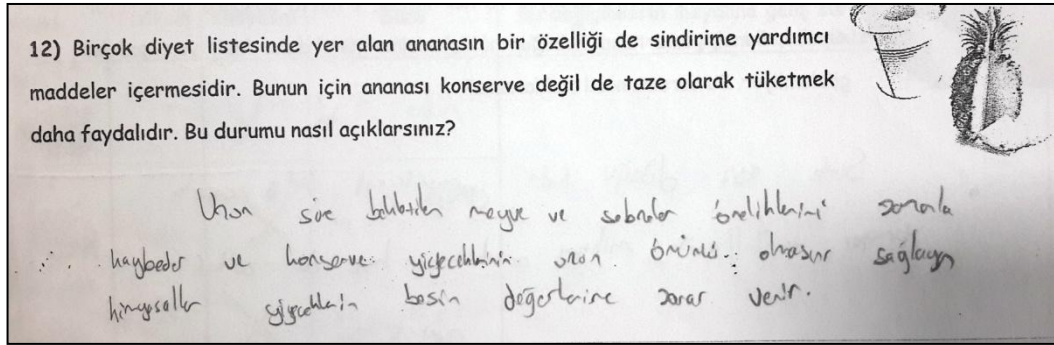 12) Birçok diyet listesinde yer alan ananasın bir özelliği de sindirime yardımcı
maddeler içermesidir. Bunun için ananası konserve değil de taze olarak tüketmek
daha faydalıdır. Bu durumu nasıl açıklarsınız?
Uzun süre bekletilen meyve ve sebzeler özelliklerini zamanla
kaybeder ve konserve yiyeceklerinin uzun ömürlü olmasını sağlayan
kimyasallar yiyeceklerin besin değerlerine zarar verir.